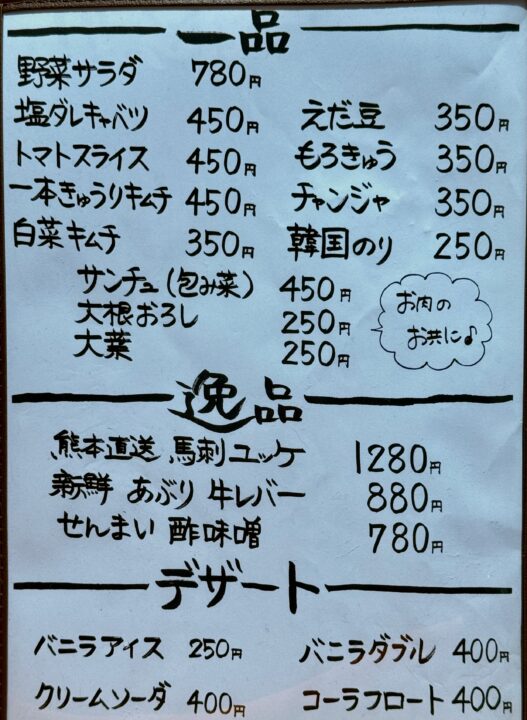 一品
野菜サラダ 780円
塩ダレキャベツ 450円 えだ豆 350円
トマトスライス 450円 もろきゅう 350円
一本きゅうりキムチ 450円 チャンジャ 350円
白菜キムチ 350円 韓国のり 250円
サンチュ(包み菜) 450円
大根おろし 250円
大葉 250円
お肉の
お共に♪
逸品
熊本直送 馬刺ユッケ 1280円
新鮮 あぶり 牛レバー 880円
せんまい 酢味噌 780円
デザート
バニラアイス 250円 バニラダブル 400円
クリームソーダ 400円 コーラフロート 400円